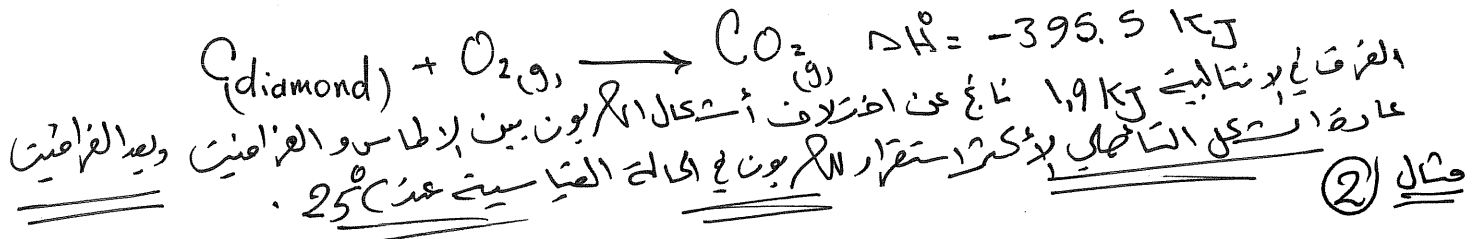 C(diamond) + O₂(g) ⟶ CO₂(g) ΔH° = -395.5 KJ
الفرق في الإنتالبية 1,9 KJ ناتج عن اختلاف أشكال الكربون بين الالماس و الغرافيت ويعد الغرافيت
عادة الشكل التآصلي لأكثر استقرار للكربون في الحالة القياسية عند 25°C .
مثال (2)